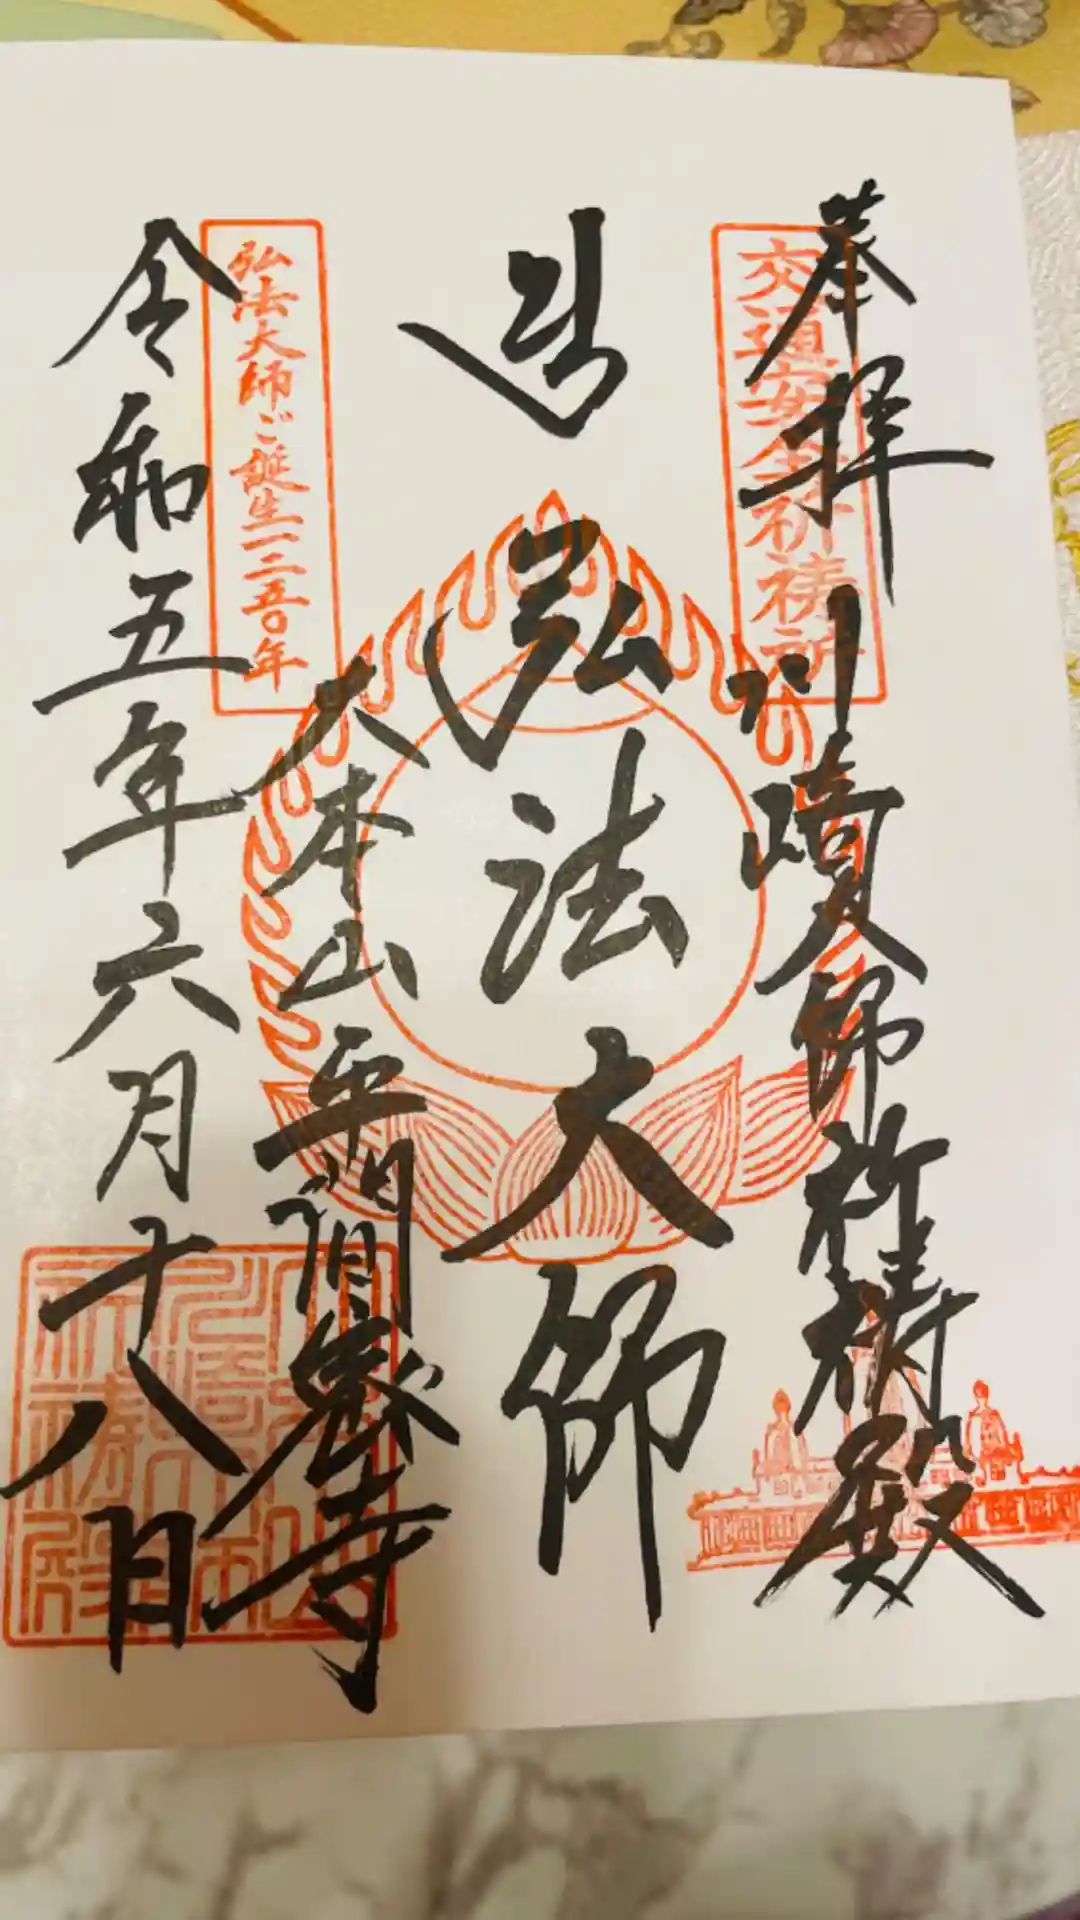 奉拝
川崎大師祈祷殿
交通安全祈祷所
弘法大師
大本山平間寺
弘法大師ご誕生一二五〇年
令和五年六月十八日